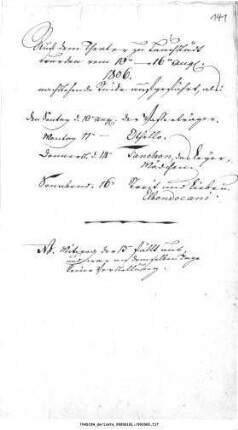 141
Auf dem Theater zu Lauchstädt
wurden vom 10ᵗ — 16ᵗ Augl.
1806.
nachstehende Stücke aufgeführt, als:
den Sontag d. 10ᵗ Aug. der Wasserträger.
Montag 11ᵗ — Othello.
Donnerst. d. 14ᵗ Fanchon, das Leyer-
Mädchen.
Sonnabend. 16ᵗ Trotz und Liebe u.
Il Bondocani.
Nt. Mittwog der 13ᵗ fällt aus,
und war auf demselben Tage
keine Vorstellung.